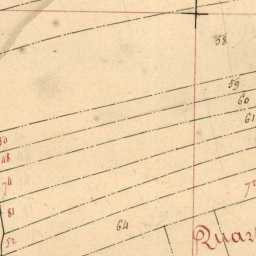 58
59
60
61
50
48
74
81
52
64
72
Quar